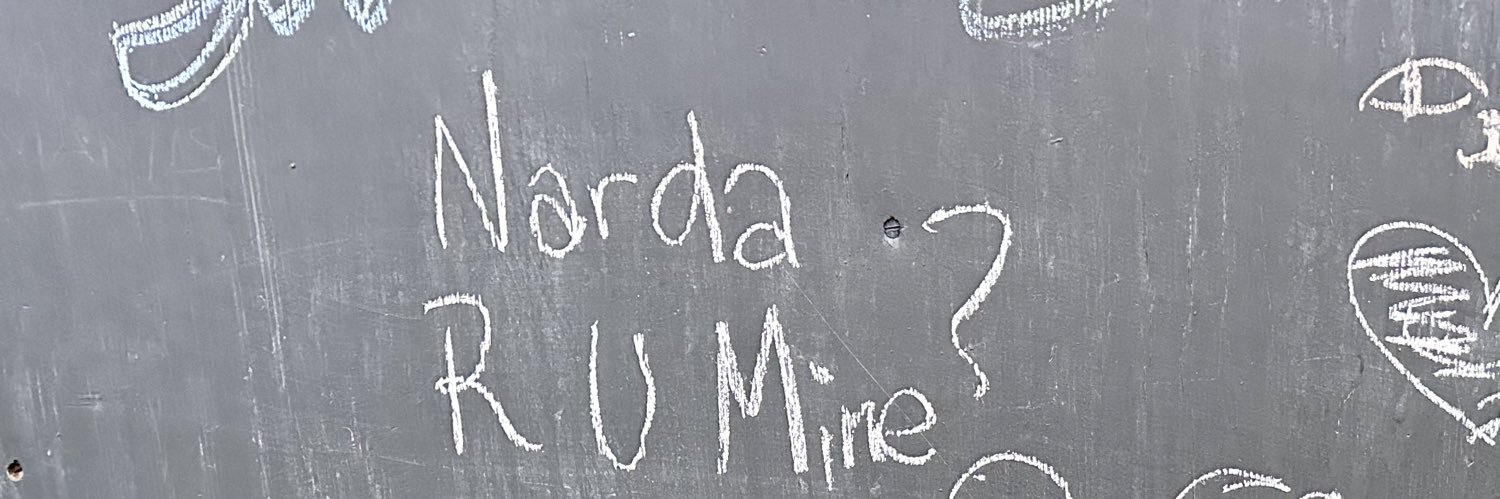 Narda
R U Mine?